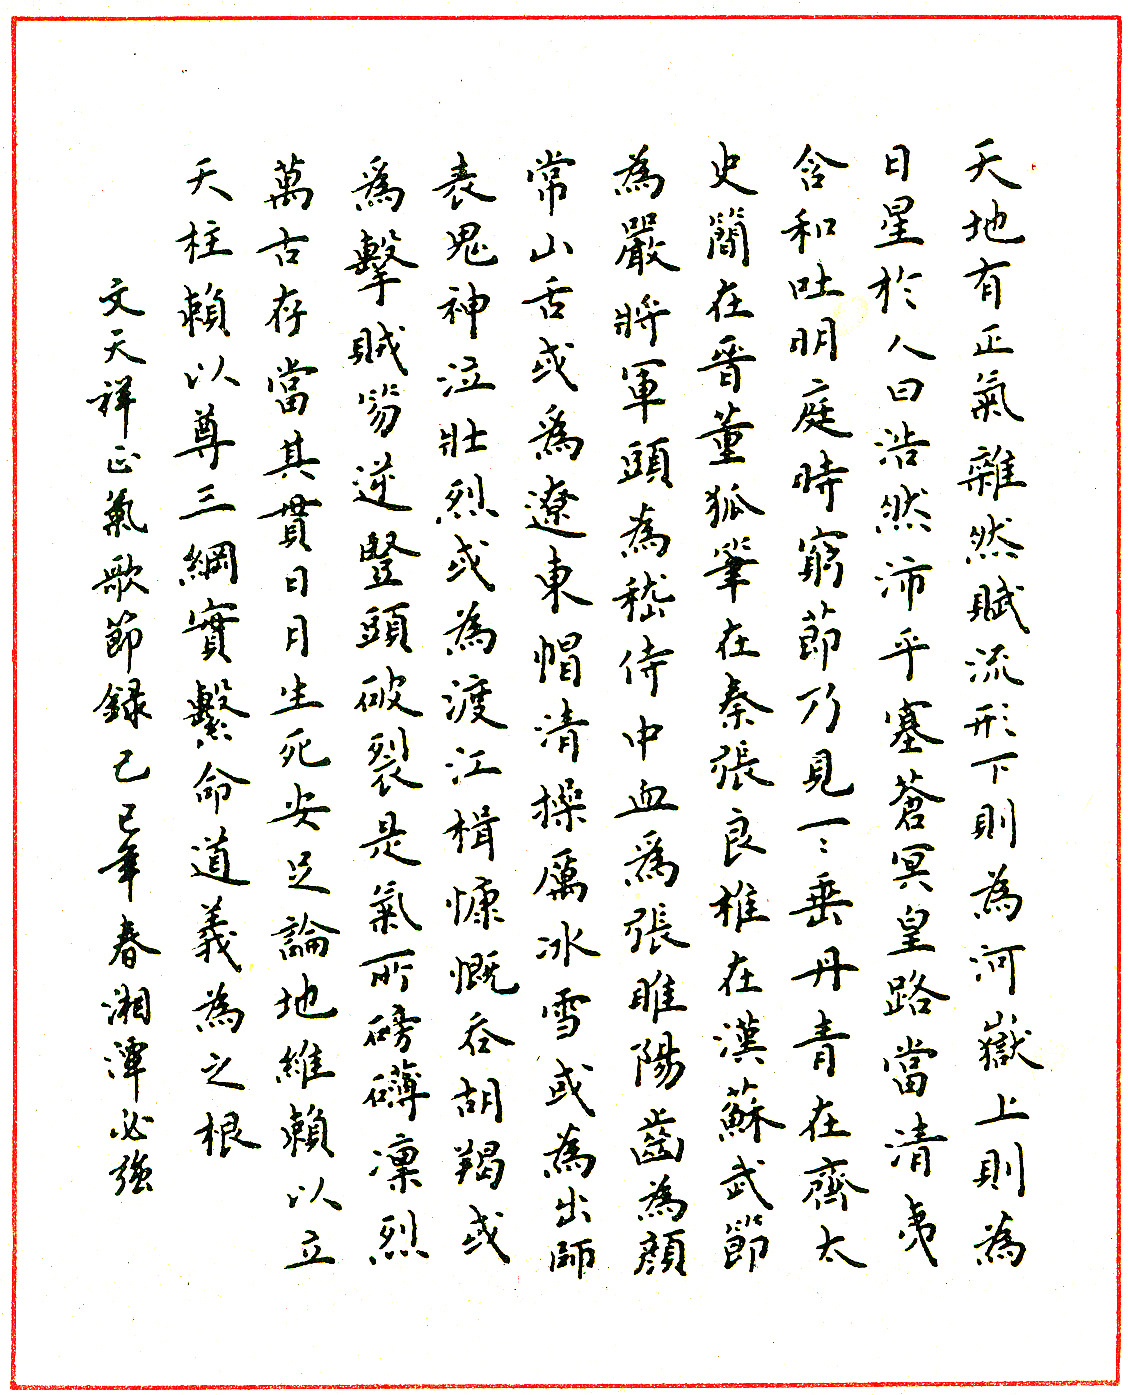 天地有正氣雜然賦流形下則為河嶽上則為
日星於人曰浩然沛乎塞蒼冥皇路當清夷
含和吐明庭時窮節乃見一ミ垂丹青在齊太
史簡在晋董狐筆在秦張良椎在漢蘇武節
為嚴將軍頭為嵇侍中血爲張睢陽齒為顔
常山舌或爲遼東帽清操厲冰雪或為出師
表鬼神泣壯烈或為渡江楫慷慨吞胡羯或
爲擊賊笏逆豎頭破裂是氣所磅礴凜烈
萬古存當其貫日月生死安足論地維賴以立
天柱賴以尊三綱實繫命道義為之根
文天祥正氣歌節録己巳年春湘潭必強